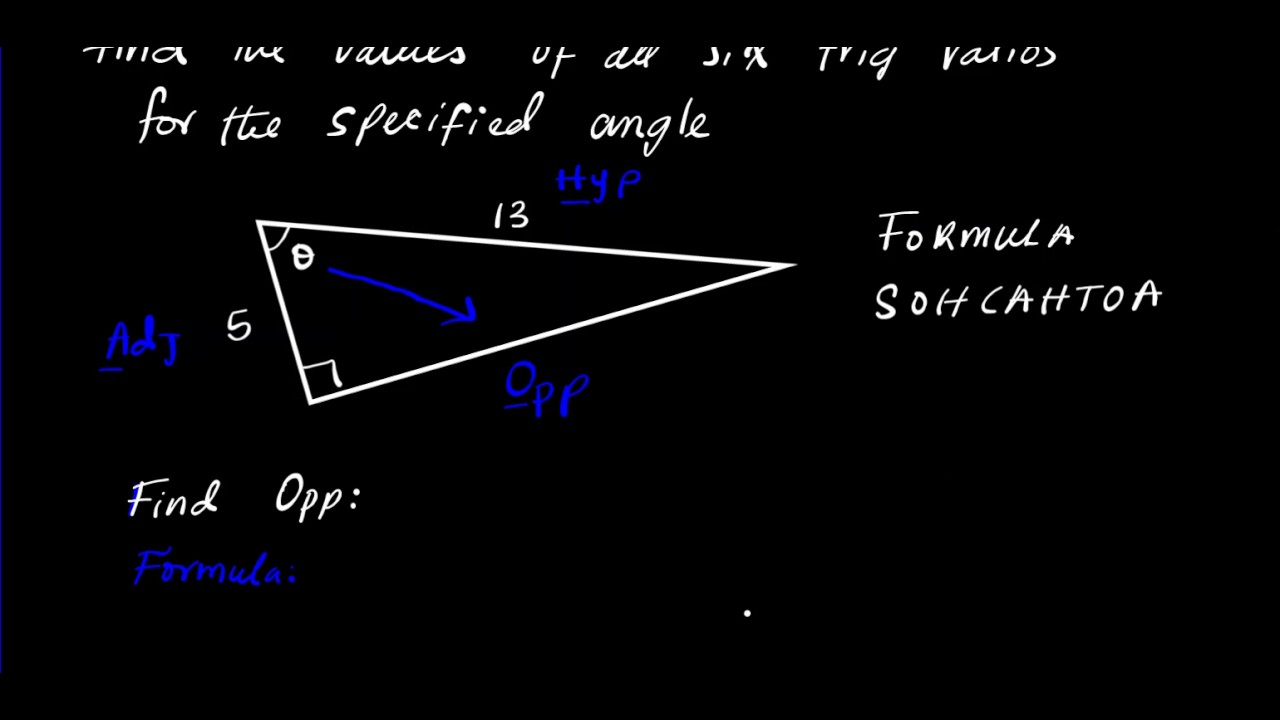 find the values of all six trig ratios
for the specified angle
Hyp
13
FORMULA
θ
SOHCAHTOA
5
Adj
Opp
Find Opp:
Formula: